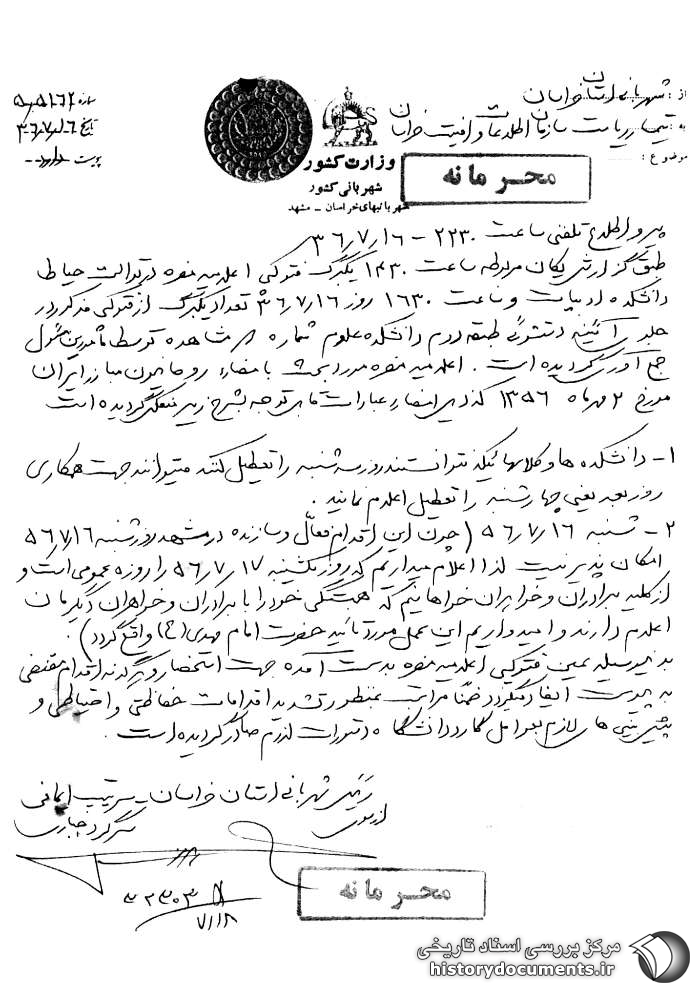 از : شهربانی استان خراسان
به : تیمسار ریاست سازمان اطلاعات و امنیت خراسان
موضوع :
شماره
تاریخ
پیوست دارد
وزارت کشور
شهربانی کشور
شهربانیهای خراسان - مشهد
محرمانه
پیرو اطلاع تلفنی ساعت ۲۲۳۰ - ۳۶/۷/۱۶
طبق گزارش یگان مربوطه ساعت ۱۴۳۰ یکبرگ فتوکپی اعلامیه مضره در توالت حیاط
دانشکده ادبیات و ساعت ۱۶۳۰ روز ۳۶/۷/۱۶ تعداد یکبرگ از فتوکپی مذکور در
جلوی آئینه دستشوئی طبقه دوم دانشکده علوم شماره مشاهده توسط مامورین مسئول
جمع آوری گردیده است . اعلامیه مضره مورد بحث با امضاء روحانیون مبارز ایران
مورخ ۲ مهرماه ۱۳۵۶ که ذیل امضاء عبارات مابل توجه بشرح زیر منعکس گردیده است
۱- دانشکده ها و کلاسهائیکه نتوانستند روز سه شنبه را تعطیل کنند میتوانند جهت همکاری
روز بعد یعنی چهارشنبه را تعطیل اعلام نمایند .
۲- شنبه ۵۶/۷/۱۶ (چون این اقدام فعال و سازنده در مشهد روز شنبه ۵۶/۷/۱۶
امکان پذیر نیست لذا اعلام میداریم که روز یکشنبه ۵۶/۷/۱۷ را روزه عمومی است و
از کلیه برادران و خواهران خواهانیم که همبستگی خود را با برادران و خواهران دیگرمان
اعلام دارند و امیدواریم این عمل مورد تائید حضرت امام مهدی (ع) واقع گردد) .
بدینوسیله عین فتوکپی اعلامیه مضره بدست آمده جهت استحضار و هرگونه اقدام مقتضی
به پیوست ایفاد میگردد ضمنا مراتب بمنظور تشدید اقدامات حفاظتی و احتیاطی و
پیش بینی های لازم بعوامل گارد دانشگاه دستورات لازم صادر گردیده است .
رئیس شهربانی استان خراسان - سرتیپ ایمانی
از طرف
سرگرد جباری
محرمانه
۷/۱۸
مرکز بررسی اسناد تاریخی
historydocuments.ir